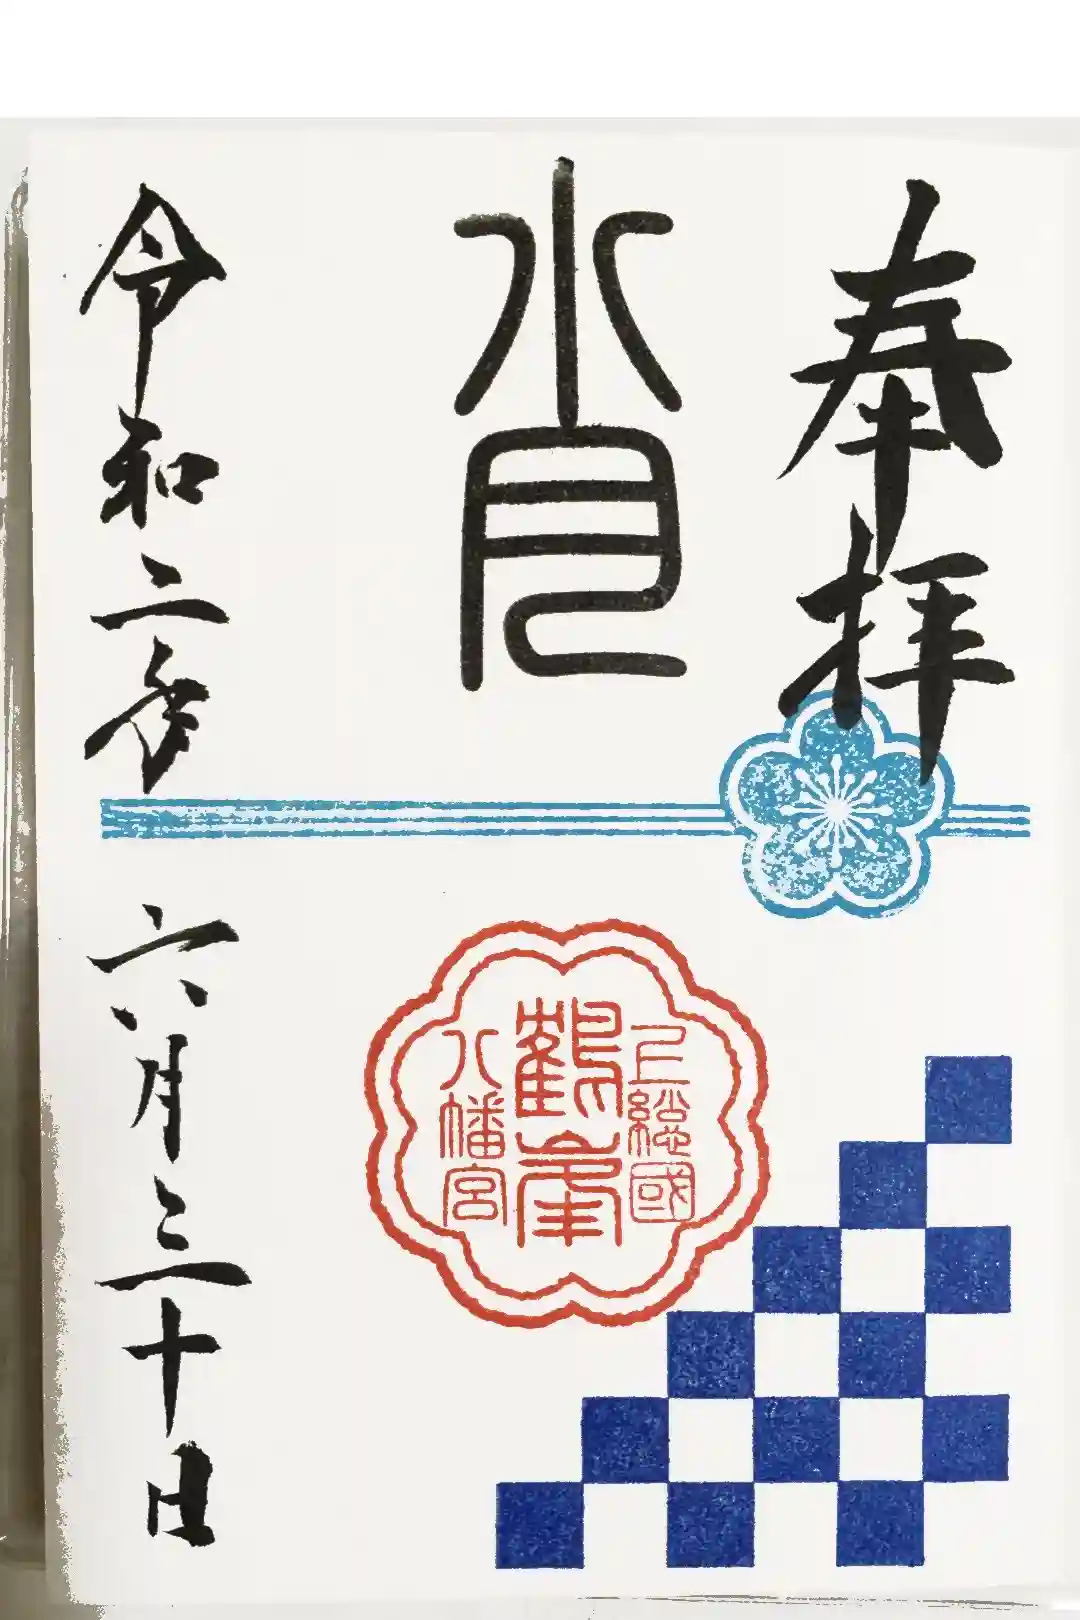 奉拝
上総國
鶴峯
八幡宮
令和二年
六月三十日